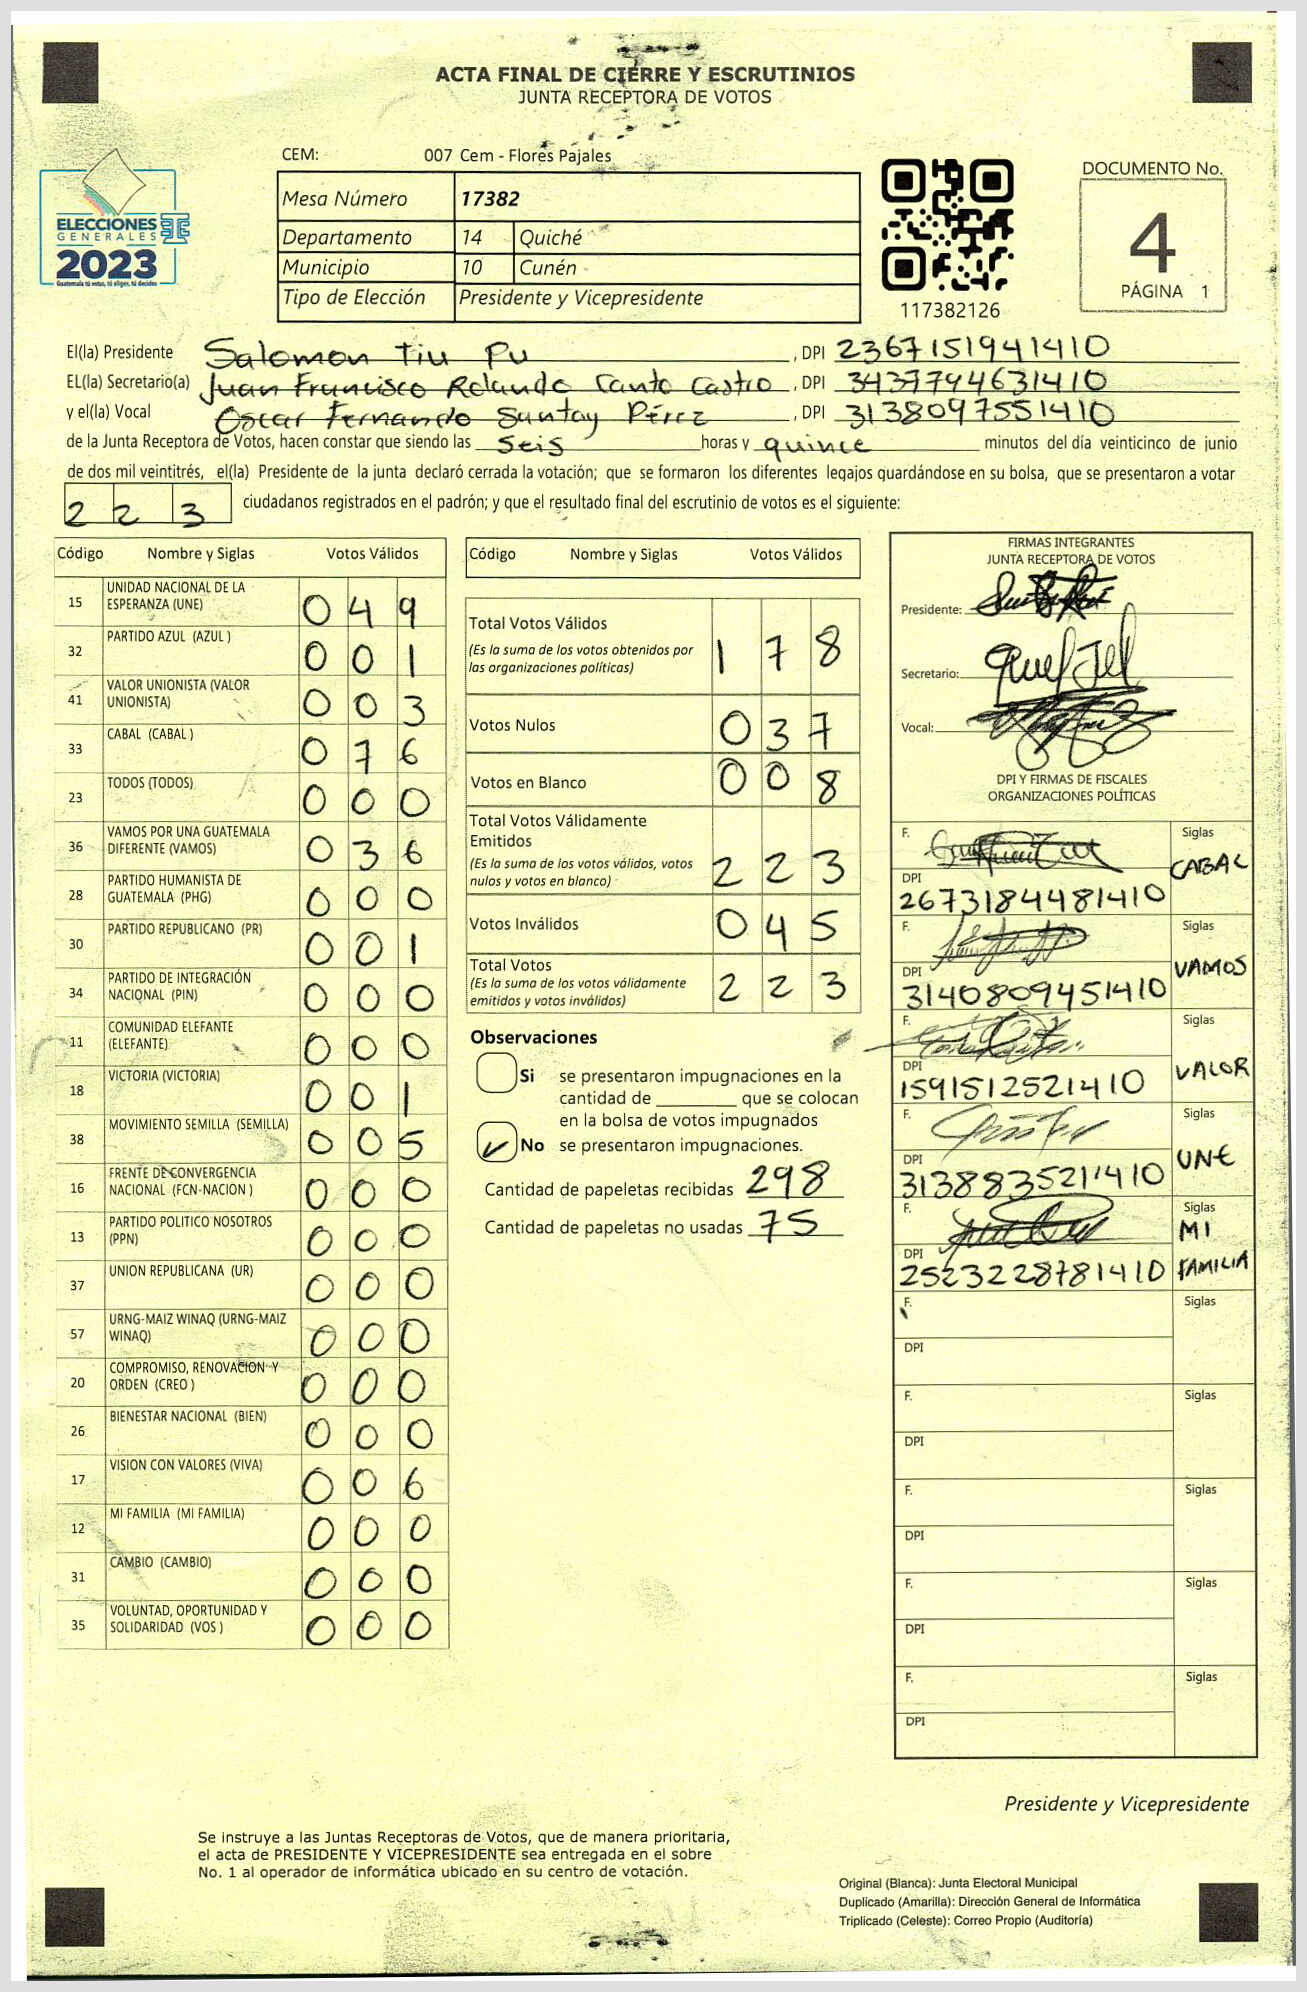 ACTA FINAL DE CIERRE Y ESCRUTINIOS
JUNTA RECEPTORA DE VOTOS
CEM: 007 Cem - Flores Pajales
Mesa Número 17382
Departamento 14 Quiché
Municipio 10 Cunén
Tipo de Elección Presidente y Vicepresidente
ELECCIONES
GENERALES
2023
Guatemala tú votas, tú eliges, tú decides
117382126
DOCUMENTO No.
4
PÁGINA 1
El(la) Presidente Salomon Tiu Pu, DPI 2367151941410
EL(la) Secretario(a) Juan Francisco Rolando Canto Castro, DPI 3437794631410
y el(la) Vocal Oscar Fernando Suntay Pérez, DPI 3138097551410
de la Junta Receptora de Votos, hacen constar que siendo las seis horas y quince minutos del día veinticinco de junio
de dos mil veintitrés, el(la) Presidente de la junta declaró cerrada la votación; que se formaron los diferentes legajos quardándose en su bolsa, que se presentaron a votar
2 2 3 ciudadanos registrados en el padrón; y que el resultado final del escrutinio de votos es el siguiente:
Código Nombre y Siglas Votos Válidos
15 UNIDAD NACIONAL DE LA ESPERANZA (UNE) 0 4 9
32 PARTIDO AZUL (AZUL ) 0 0 1
41 VALOR UNIONISTA (VALOR UNIONISTA) 0 0 3
33 CABAL (CABAL ) 0 7 6
23 TODOS (TODOS) 0 0 0
36 VAMOS POR UNA GUATEMALA DIFERENTE (VAMOS) 0 3 6
28 PARTIDO HUMANISTA DE GUATEMALA (PHG) 0 0 0
30 PARTIDO REPUBLICANO (PR) 0 0 1
34 PARTIDO DE INTEGRACIÓN NACIONAL (PIN) 0 0 0
11 COMUNIDAD ELEFANTE (ELEFANTE) 0 0 0
18 VICTORIA (VICTORIA) 0 0 1
38 MOVIMIENTO SEMILLA (SEMILLA) 0 0 5
16 FRENTE DE CONVERGENCIA NACIONAL (FCN-NACION ) 0 0 0
13 PARTIDO POLITICO NOSOTROS (PPN) 0 0 0
37 UNION REPUBLICANA (UR) 0 0 0
57 URNG-MAIZ WINAQ (URNG-MAIZ WINAQ) 0 0 0
20 COMPROMISO, RENOVACION Y ORDEN (CREO ) 0 0 0
26 BIENESTAR NACIONAL (BIEN) 0 0 0
17 VISION CON VALORES (VIVA) 0 0 6
12 MI FAMILIA (MI FAMILIA) 0 0 0
31 CAMBIO (CAMBIO) 0 0 0
35 VOLUNTAD, OPORTUNIDAD Y SOLIDARIDAD (VOS ) 0 0 0
Código Nombre y Siglas Votos Válidos
Total Votos Válidos 1 7 8
(Es la suma de los votos obtenidos por
las organizaciones políticas)
Votos Nulos 0 3 7
Votos en Blanco 0 0 8
Total Votos Válidamente
Emitidos 2 2 3
(Es la suma de los votos válidos, votos
nulos y votos en blanco)
Votos Inválidos 0 4 5
Total Votos 2 2 3
(Es la suma de los votos válidamente
emitidos y votos inválidos)
Observaciones
Si se presentaron impugnaciones en la
cantidad de ________ que se colocan
en la bolsa de votos impugnados
No se presentaron impugnaciones.
Cantidad de papeletas recibidas 298
Cantidad de papeletas no usadas 75
FIRMAS INTEGRANTES
JUNTA RECEPTORA DE VOTOS
Presidente:
Secretario:
Vocal:
DPI Y FIRMAS DE FISCALES
ORGANIZACIONES POLÍTICAS
F. Siglas
CABAL
DPI
2673184481410
F. Siglas
VAMOS
DPI
3140809451410
F. Siglas
VALOR
DPI
1591512521410
F. Siglas
UNE
DPI
3138835211410
F. Siglas
MI
FAMILIA
DPI
2523228781410
F. Siglas
DPI
F. Siglas
DPI
F. Siglas
DPI
F. Siglas
DPI
F. Siglas
DPI
Presidente y Vicepresidente
Se instruye a las Juntas Receptoras de Votos, que de manera prioritaria,
el acta de PRESIDENTE Y VICEPRESIDENTE sea entregada en el sobre
No. 1 al operador de informática ubicado en su centro de votación.
Original (Blanca): Junta Electoral Municipal
Duplicado (Amarilla): Dirección General de Informática
Triplicado (Celeste): Correo Propio (Auditoría)